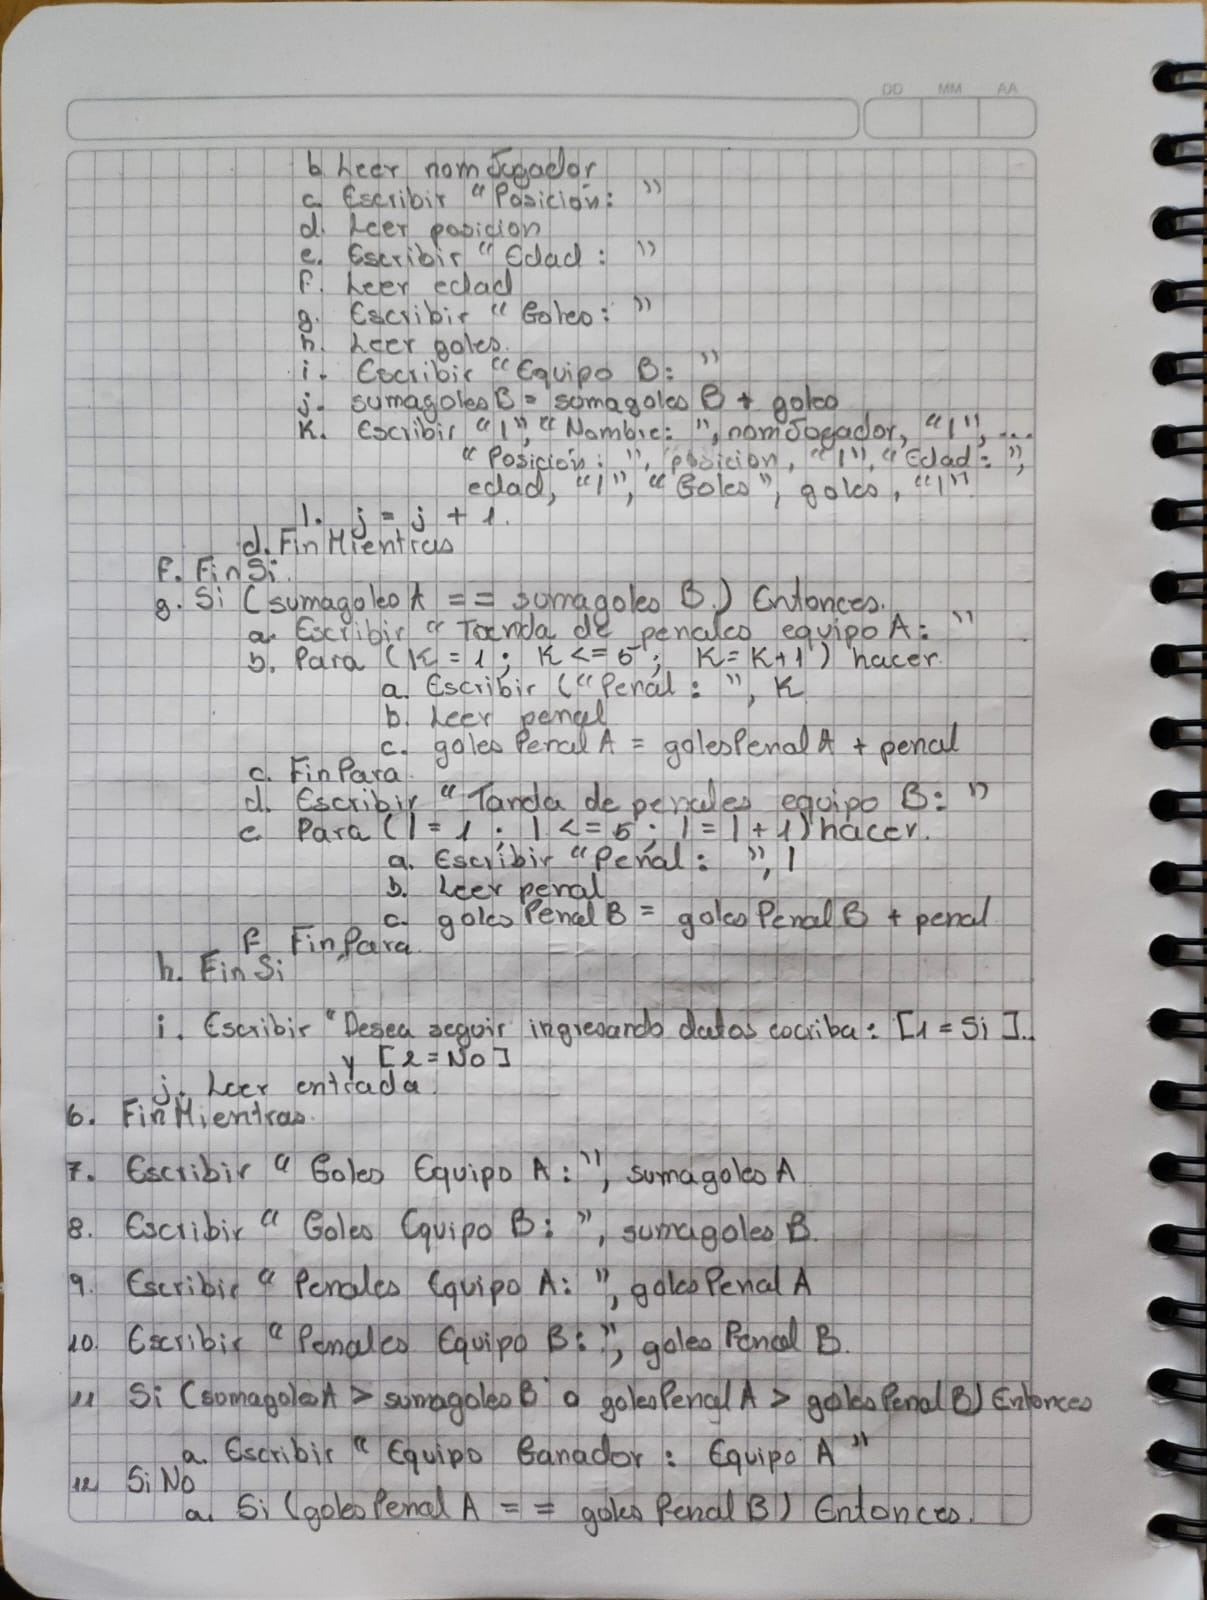 DD MM AA
b. Leer nomJugador
c. Escribir "Posición: "
d. Leer posicion
e. Escribir "Edad: "
f. Leer edad
g. Escribir "Goles: "
h. Leer goles.
i. Escribir "Equipo B: "
j. sumagolesB = sumagolesB + goles
K. Escribir "|", "Nombre: ", nomJugador, "|", ...
"Posición: ", posicion, "|", "Edad: ",
edad, "|", "Goles", goles, "|"
l. j = j + 1.
d. FinMientras
f. FinSi.
g. Si (sumagolesA == sumagolesB.) Entonces.
a. Escribir "Tanda de penales equipo A: "
b. Para (K = 1; K <= 5; K = K+1) hacer.
a. Escribir ("Penal: ", K
b. Leer penal
c. golesPenalA = golesPenalA + penal
c. FinPara.
d. Escribir "Tanda de penales equipo B: "
e. Para (l = 1; l <= 5; l = l + 1) hacer.
a. Escribir "Penal: ", l
b. Leer penal
c. golesPenalB = golesPenalB + penal
f. FinPara.
h. FinSi
i. Escribir "Desea seguir ingresando datos escriba: [1 = Si]..
y [2 = No]
j. Leer entrada.
6. FinMientras.
7. Escribir "Goles Equipo A:", sumagolesA
8. Escribir "Goles Equipo B: ", sumagolesB.
9. Escribir "Penales Equipo A: ", golesPenalA
10. Escribir "Penales Equipo B: ", golesPenalB.
11 Si (sumagolesA > sumagolesB o golesPenalA > golesPenalB) Entonces
a. Escribir "Equipo Ganador: Equipo A"
12 SiNo
a. Si (golesPenalA == golesPenalB) Entonces.